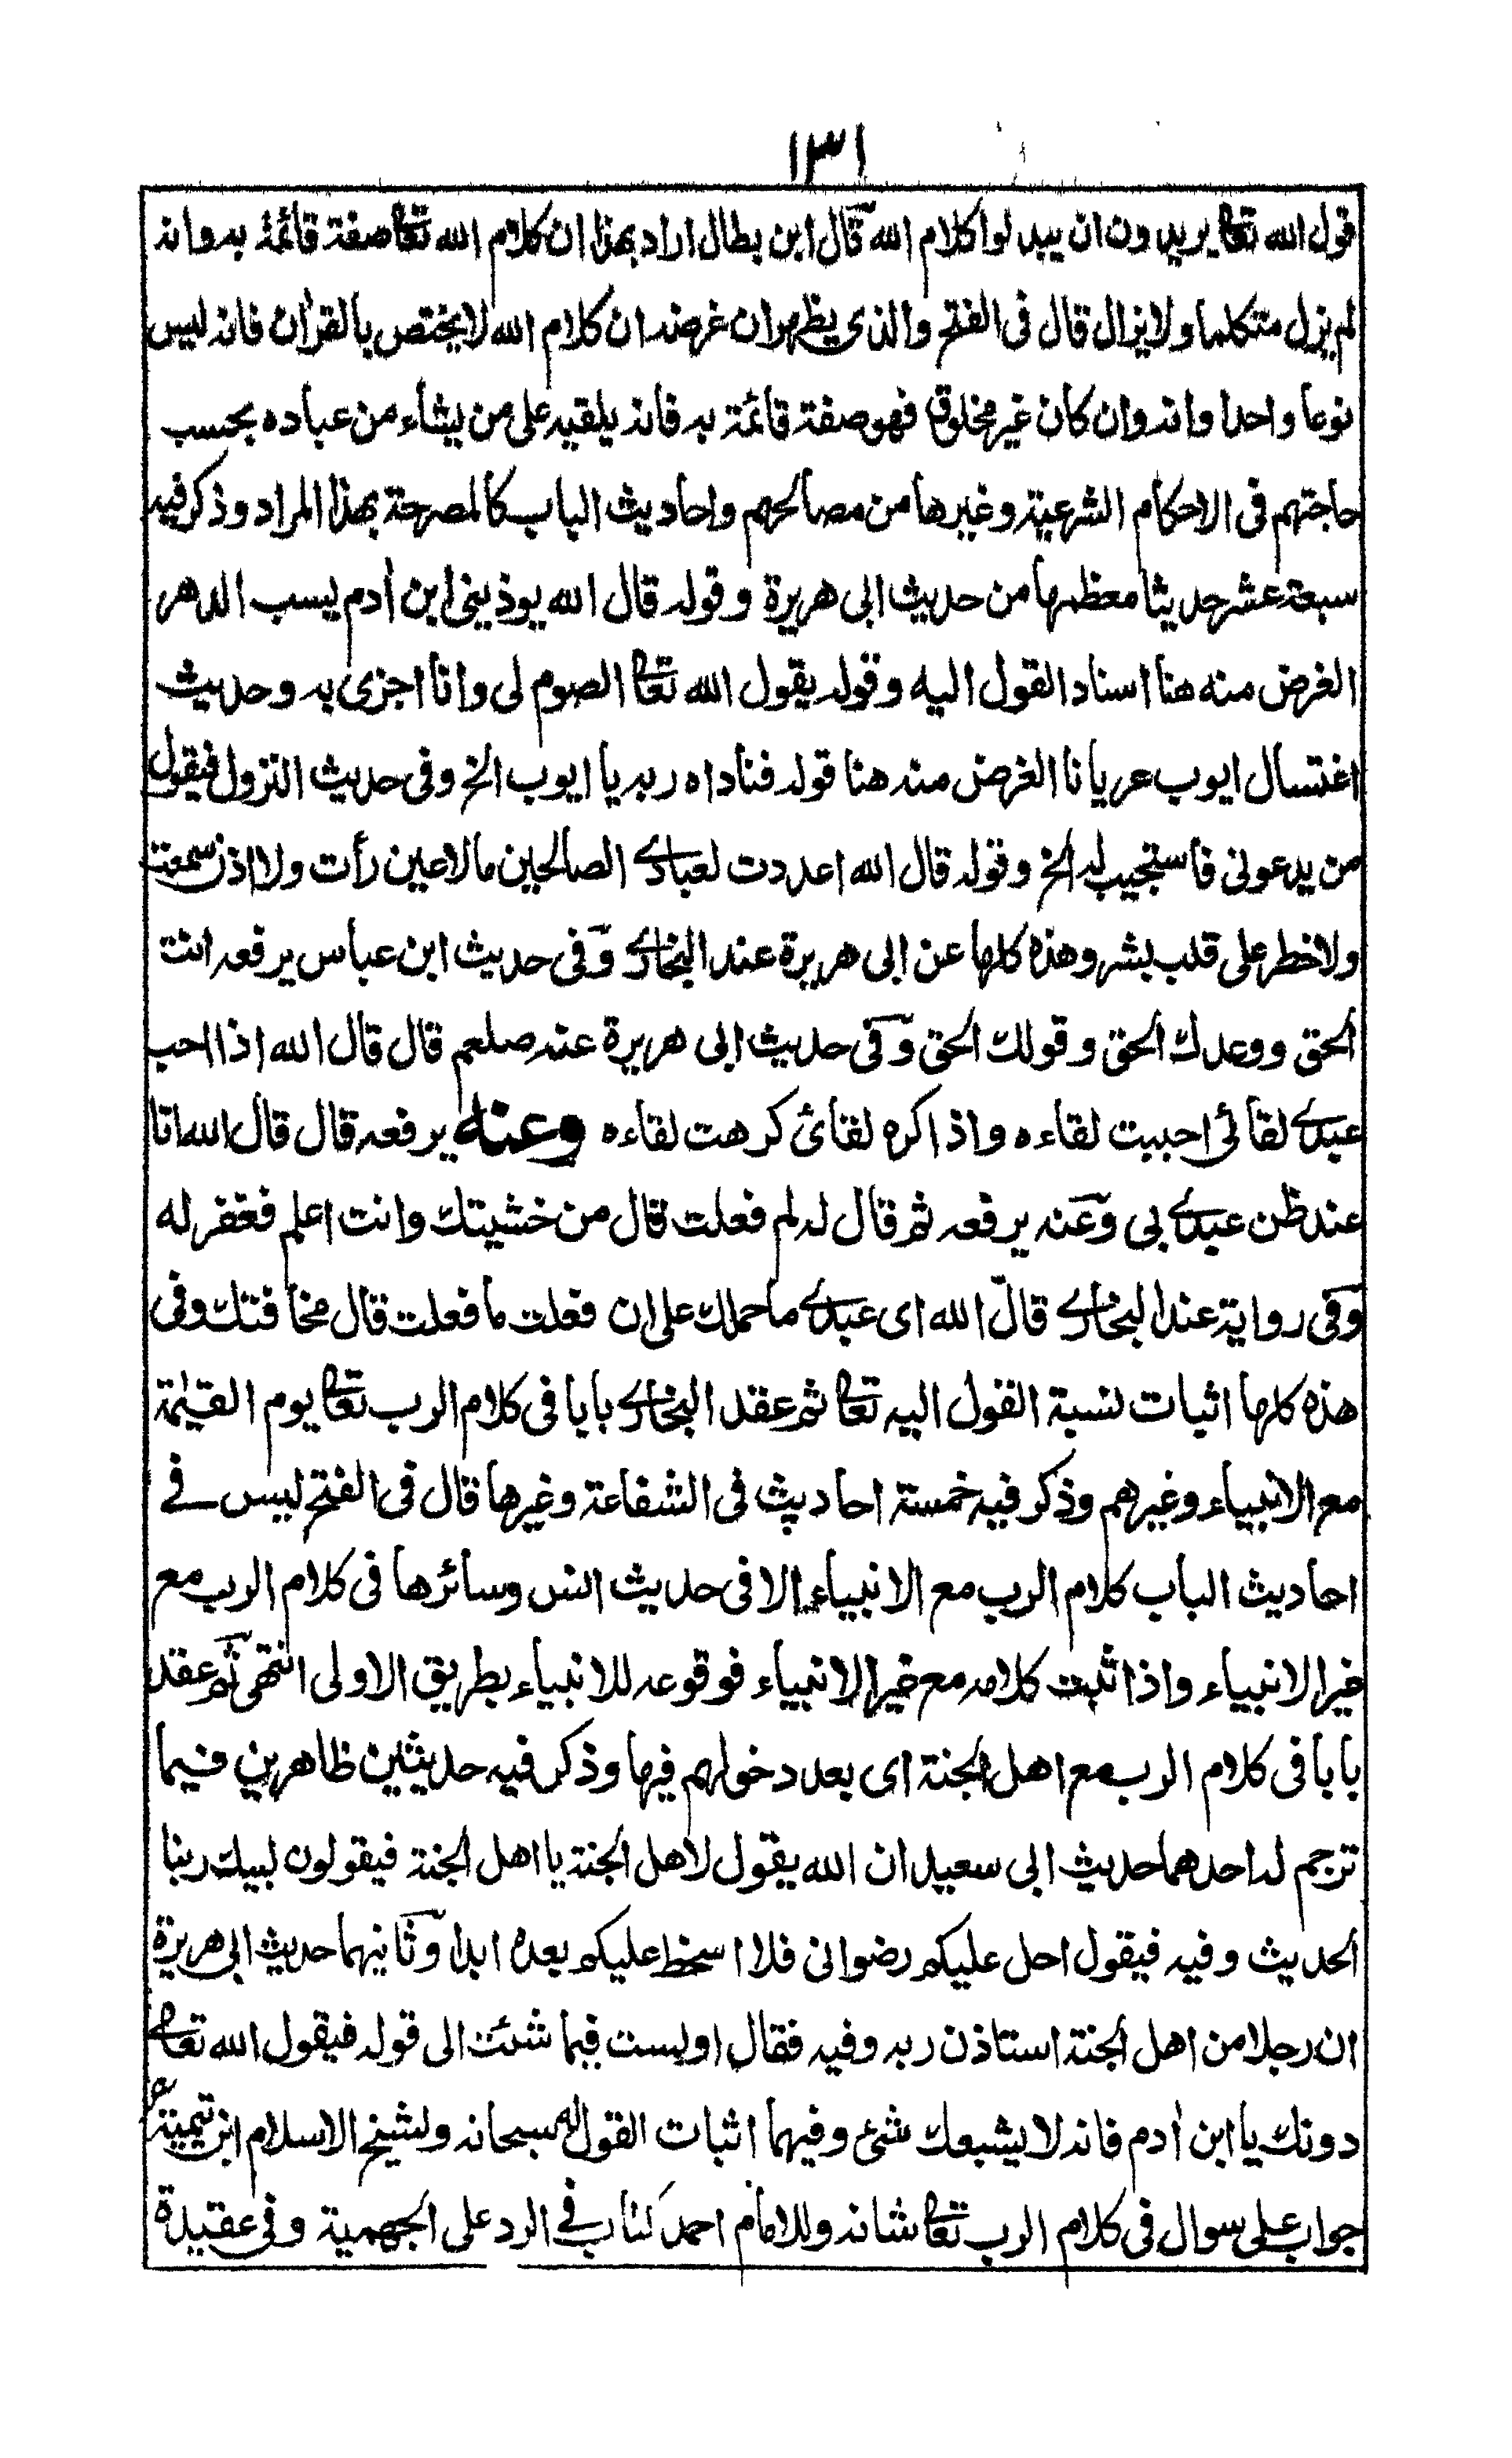 ١٣١
قول الله تعا يريدون ان يبدلوا كلام الله قال ابن بطال اراد بهذا ان كلام الله تعا صفة قائمة به وانه
لم يزل متكلما ولا يزال قال فى الفتح والذى يظهر ان غرضه ان كلام الله لا يختص بالقرآن فانه ليس
نوعا واحدا وانه وان كان غير مخلوق فهو صفة قائمة به فانه يلقيه على من يشاء من عباده بحسب
حاجتهم فى الاحكام الشرعية وغيرها من مصالحهم واحاديث الباب كالمصرحة بهذا المراد وذكر فيه
سبعة عشر حديثا معظمها من حديث ابى هريرة وقوله قال الله يوذينى ابن أدم يسب الدهر
الغرض منه هنا اسناد القول اليه وقوله يقول الله تعا الصوم لى وانا اجزى به وحديث
اغتسال ايوب عريانا الغرض منه هنا قوله فناداه ربه يا ايوب الخ وفى حديث النزول فيقول
من يدعونى فاستجيب له الخ وقوله قال الله اعددت لعبادے الصالحين مالاعين رأت ولا اذن سمعت
ولا خطر على قلب بشر وهذه كلها عن ابى هريرة عند البخارے وفى حديث ابن عباس يرفعه انت
الحق ووعدك الحق وقولك الحق وفى حديث ابى هريرة عنه صلعم قال قال الله اذا احب
عبدے لقائى احببت لقاءه واذا كره لقائ كرهت لقاءه وعنه يرفعه قال قال الله انا
عند ظن عبدے بى وعنه يرفعه ثم قال له لم فعلت قال من خشيتك وانت اعلم فغفر له
وفى رواية عند البخارے قال الله اى عبدے ما حملك على ان فعلت ما فعلت قال مخافتك وفى
هذه كلها اثبات نسبة القول اليه تعا ثم عقد البخارے بابا فى كلام الرب تعا يوم القيٰمة
مع الانبياء وغيرهم وذكر فيه خمسة احاديث فى الشفاعة وغيرها قال فى الفتح ليس فے
احاديث الباب كلام الرب مع الانبياء الا فى حديث انس وسائرها فى كلام الرب مع
غير الانبياء واذا ثبت كلامه مع غير الانبياء فوقوعه للانبياء بطريق الاولى انتهى ثم عقد
بابا فى كلام الرب مع اهل الجنة اى بعد دخولهم فيها وذكر فيه حديثين ظاهرين فيما
ترجم له احدهما حديث ابى سعيد ان الله يقول لاهل الجنة يا اهل الجنة فيقولون لبيك ربنا
الحديث وفيه فيقول احل عليكم رضوانى فلا اسخط عليكم بعده ابدا وثانيهما حديث ابى هريرة
ان رجلا من اهل الجنة استاذن ربه وفيه فقال اولست فيما شئت الى قوله فيقول الله تعا
دونك يا ابن أدم فانه لا يشبعك شئ وفيهما اثبات القول له سبحانه ولشيخ الاسلام ابن تيمية رح
جواب على سوال فى كلام الرب تعا شانه وللامام احمد كتاب فے الرد على الجهمية وفى عقيدة